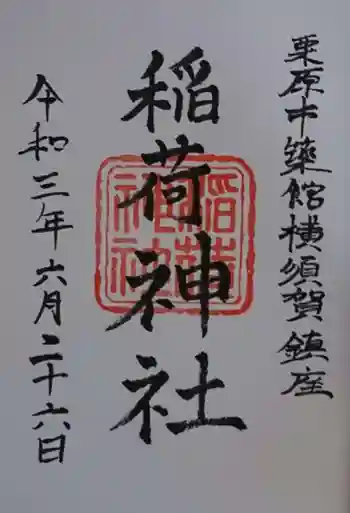 栗原市築館横須賀鎮座
稲荷神社
令和三年六月二十六日